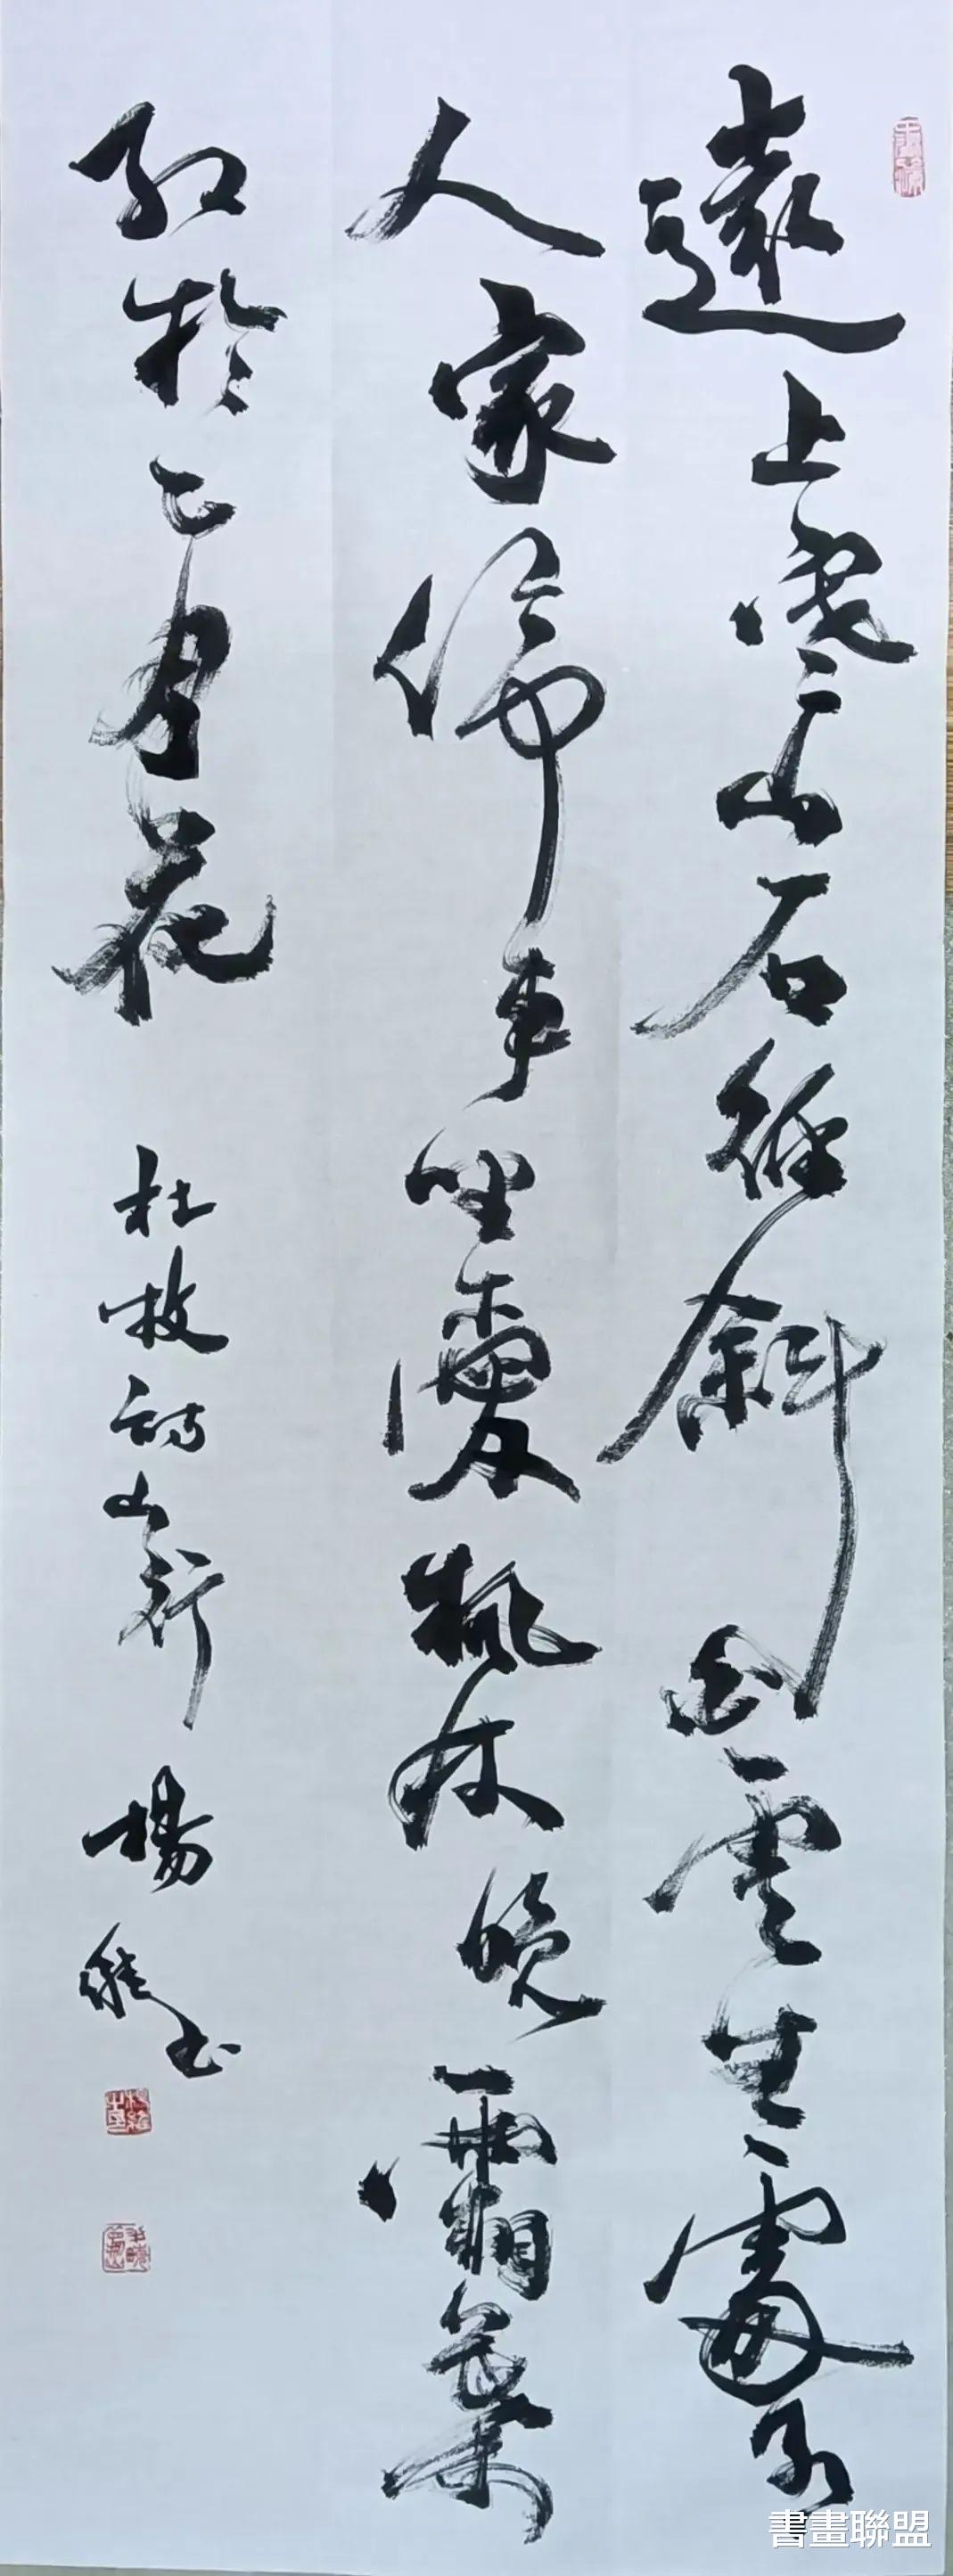 遠上寒山石徑斜白雲生處有
人家停車坐愛楓林晚霜葉
紅於二月花 杜牧詩山行 楊 书
書畫聯盟